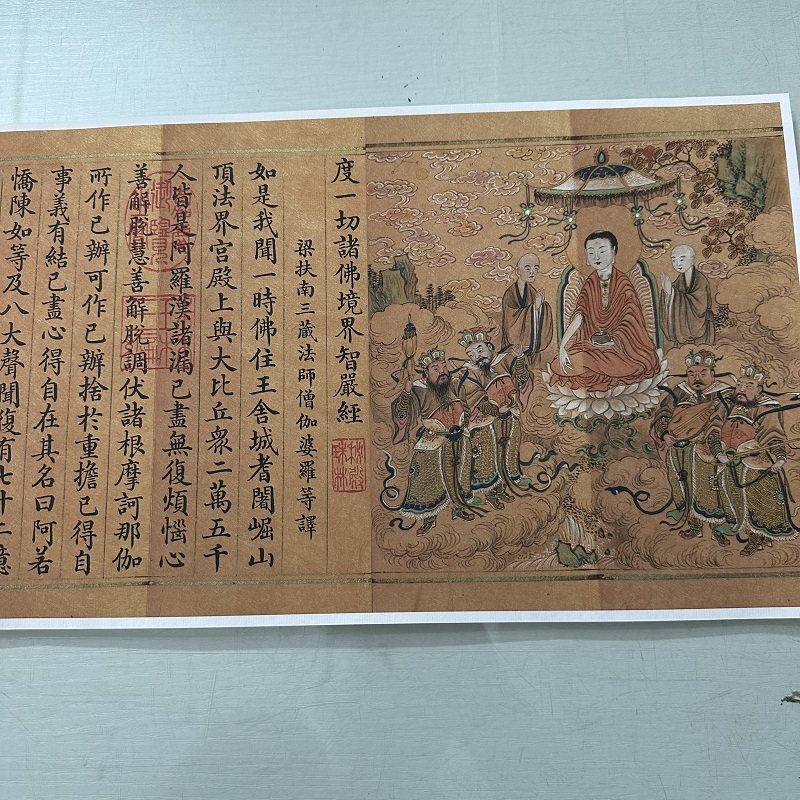 度一切諸佛境界智嚴經
梁扶南三藏法師僧伽婆羅等譯
如是我聞一時佛住王舍城耆闍崛山
頂法界宮殿上與大比丘衆二萬五千
人皆是阿羅漢諸漏已盡無復煩惱心
善解脫慧善解脫調伏諸根摩訶那伽
所作已辦可作已辦捨於重擔已得自
事義有結已盡心得自在其名曰阿若
憍陳如等及八大聲聞復有七十二億